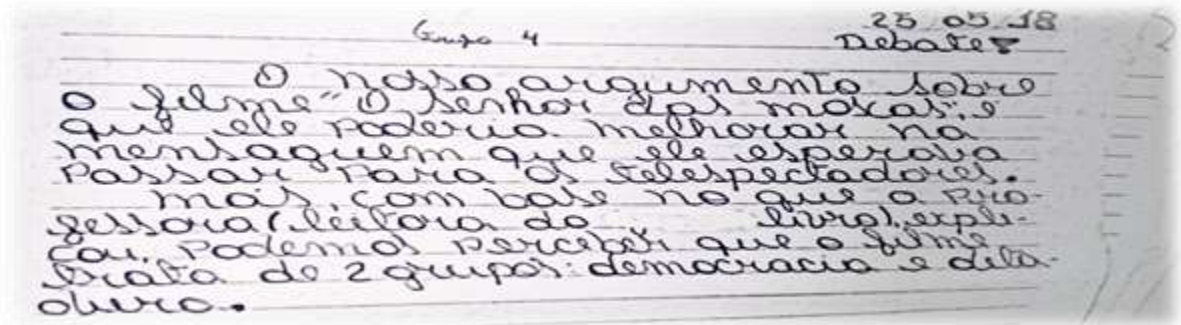 Grupo 4
25 05 18
Debate
O nosso argumento sobre
o filme "O senhor das moscas", é
que ele poderia melhorar na
mensaguem que ele esperava
Passar Para os telespectadores.
mais, com base no que a pro-
fessora (leitora do livro), expli-
cou. Podemos perceber que o filme
trata de 2 grupos: democracia e dita-
dura.